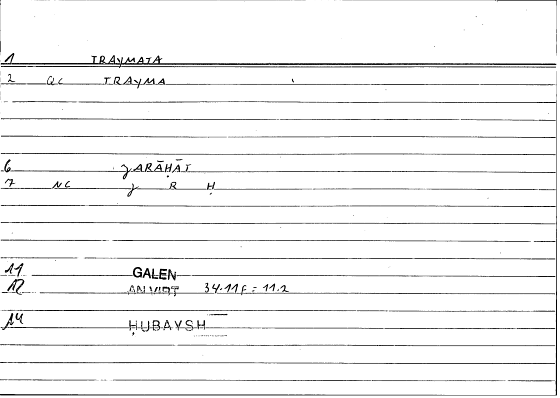 1 TRAYMATA
2 QC TRAYMA
6 JARĀḤĀT
7 NC J R Ḥ
11 GALEN
12 AN VIRT 34.11f = 11.2
14 ḤUBAYSH